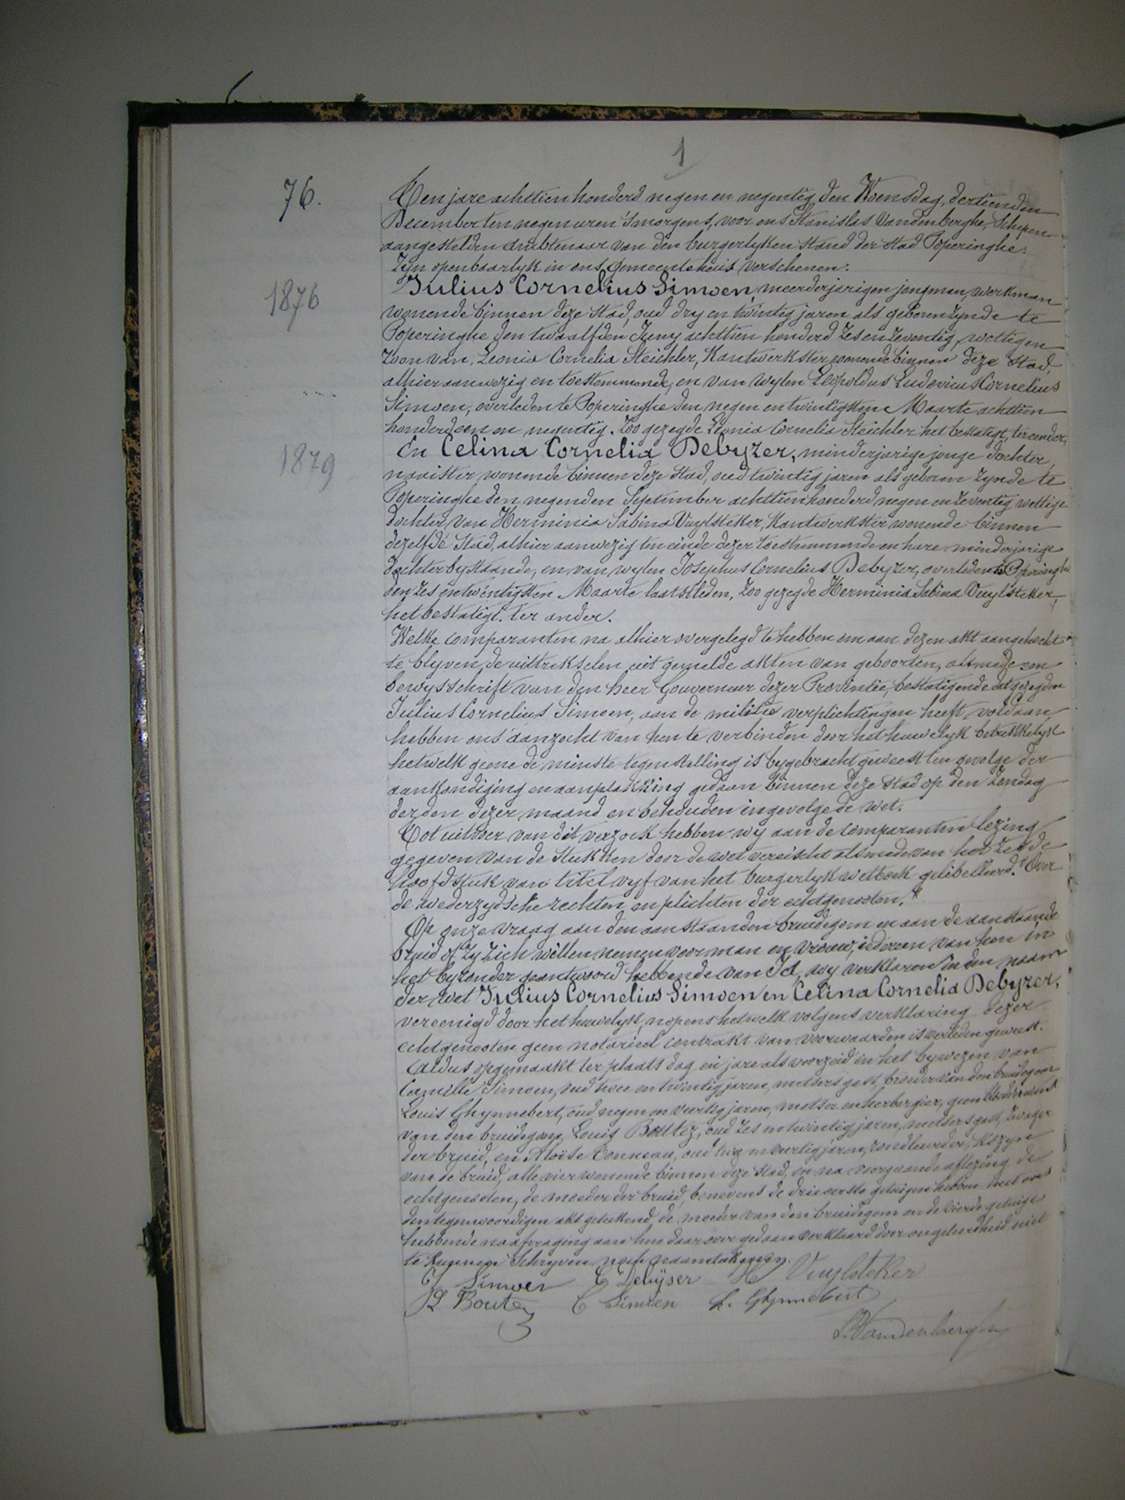 1
76.
Ten jare achttien honderd negen en negentig, den Woensdag, dertienden
December ten negen uren 'smorgens, voor ons Stanislas Vandenberghe, Schepen
aangestelden ambtenaar van den burgerlyken stand der stad Poperinghe.
Zyn openbaarlyk in ons gemeentehuis verschenen:
1876
Julius Cornelius Simoen, meerderjarigen jongman, werkman
wonende binnen deze stad, oud dry en twintig jaren als geboren zynde te
Poperinghe den twaalfden Juny achttien honderd zes en zeventig, wettigen
zoon van, Leonia Cornelia Steichler, Kantwerkster wonende binnen deze stad,
alhier aanwezig en toestemmende, en van wylen Leopoldus Ludovicus Cornelius
Simoen, overleden te Poperinghe den negen en twintigsten Maarte achttien
honderd een en negentig. Zoo gezegde Leonia Cornelia Steichler het bestatigt, ter eender,
1879
En Celina Cornelia Debyzer, minderjarige jonge dochter,
naaister, wonende binnen deze stad, oud twintig jaren als geboren zynde te
Poperinghe den negenden September achttien honderd negen en zeventig, wettige
dochter van Herminia Sabina Vuylsteker, Kantwerkster wonende binnen
dezelfde stad, alhier aanwezig ten einde dezer toestemmende en hare minderjarige
dochter bystaande, en van wylen Josephus Cornelius Debyzer, overleden te Poperinghe
den zes en twintigsten Maarte laatstleden, Zoo gezegde Herminia Sabina Vuylsteker,
het bestatigt. ter ander.
Welke comparanten na alhier overgelegd te hebben om aan dezen akt aangehecht
te blyven, de uittrekselen uit gemelde akten van geboorten, alsmede een
bewysschrift van den heer Gouverneur dezer Provintie, bestatigende dat gezegden
Julius Cornelius Simoen, aan de militie verplichtingen heeft voldaan
hebben ons aanzocht van hen te verbinden door het huwelyk betrekkelyk
hetwelk geene de minste tegenstelling is bygebracht geweest ten gevolge der
aankondiging en aanplakking gedaan binnen deze stad op den Zondag
derden dezer maand en behouden ingevolge de wet.
Tot uitvoer van dit verzoek hebben wy aan de comparanten lezing
gegeven van de stukken door de wet vereischt alsmede van het zesde
hoofdstuk van titel vyf van het burgerlyk wetboek gelibelleerd: "Over
de wederzydsche rechten en plichten der echtgenooten."
Op onze vraag aan den aanstaanden bruidegom en aan de aanstaande
bruid of zy zich willen nemen voor man en vrouw, iedereen van hen in
het byzonder geantwoord hebbende van Ja, wy verklaren in den naam
der wet Julius Cornelius Simoen en Celina Cornelia Debyzer,
vereenigd door het huwelyk, nopens hetwelk volgens verklaring dezer
echtgenooten geen notarieel contrakt van voorwaarden is verleden geweest.
Aldus opgemaakt ter plaats dag en jare als voorzeid in het bywezen van
Camille Simoen, oud twee en twintig jaren, metsersgast, broeder van den bruidegom
Louis Ghynnebert, oud negen en veertig jaren, metser en herbergier, geen bloedverwant
van den bruidegom, Louis Boutez, oud zes en twintig jaren, metsersgast, zwager
der bruid, en Aloïse Conneau, oud en veertig jaren, kozyn
van de bruid, alle vier wonende binnen deze stad, en na voorgaande aflezing de
echtgenooten, de moeder der bruid, benevens de drie eerste getuigen hebben met ons
den tegenwoordigen akt geteekend, de moeder van den bruidegom en de vierde getuige
hebbende na afvraging aan hun daar over gedaan verklaard door ongeleerdheid niet
te kunnen schryven noch naamteekenen.
J Simoen C Debyser H Vuylsteker
L Boutez C Simoen L. Ghynnebert
S. Vandenberghe